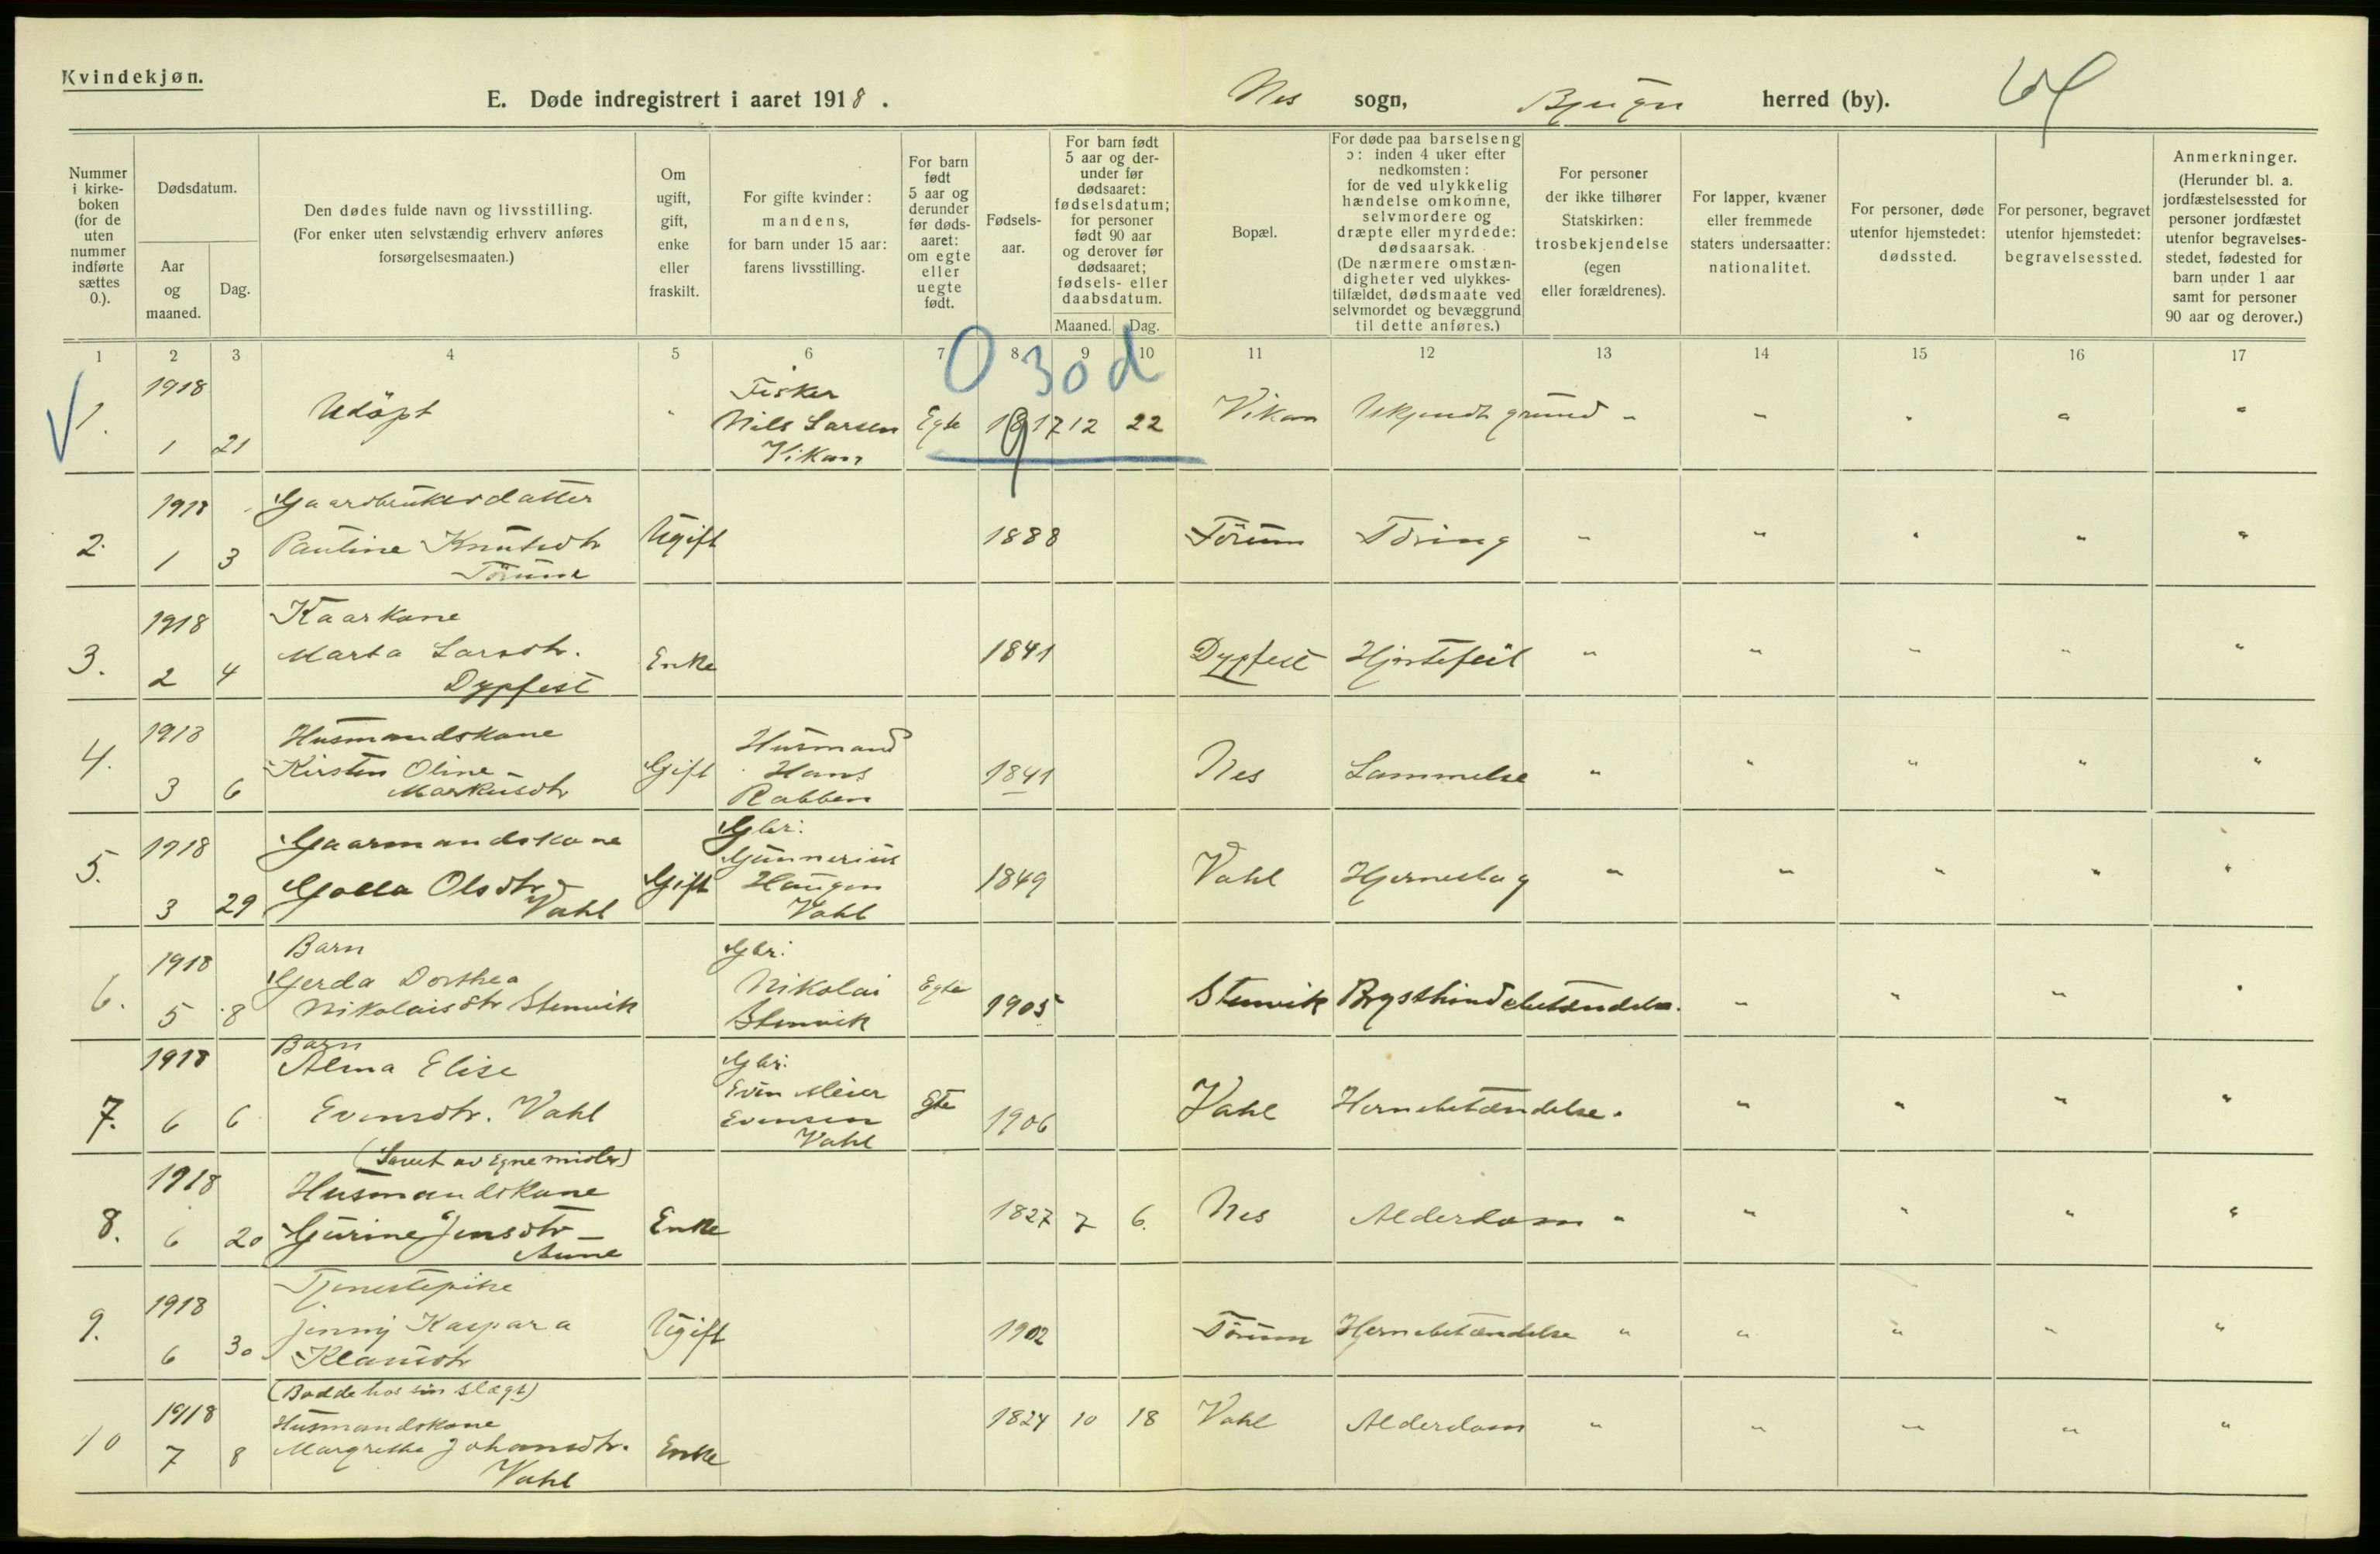 Kvindekjøn.
E. Døde indregistrert i aaret 1918.
Nes sogn, Bjugn herred (by).
Nummer i kirke-boken (for de uten nummer indførte sættes 0.).
Dødsdatum.
Aar og maaned.
Dag.
Den dødes fulde navn og livsstilling. (For enker uten selvstændig erhverv anføres forsørgelsesmaaten.)
Om ugift, gift, enke eller fraskilt.
For gifte kvinder: mandens, for barn under 15 aar: farens livsstilling.
For barn født 5 aar og derunder før døds-aaret: om egte eller uegte født.
Fødsels-aar.
For barn født 5 aar og der-under før dødsaaret: fødselsdatum; for personer født 90 aar og derover før dødsaaret; fødsels- eller daabsdatum.
Maaned. Dag.
Bopæl.
For døde paa barselseng ɔ: inden 4 uker efter nedkomsten: for de ved ulykkelig hændelse omkomne, selvmordere og dræpte eller myrdede: dødsaarsak. (De nærmere omstæn-digheter ved ulykkes-tilfældet, dødsmaate ved selvmordet og bevæggrund til dette anføres.)
For personer der ikke tilhører Statskirken: trosbekjendelse (egen eller forældrenes).
For lapper, kvæner eller fremmede staters undersaatter: nationalitet.
For personer, døde utenfor hjemstedet: dødssted.
For personer, begravet utenfor hjemstedet: begravelsessted.
Anmerkninger. (Herunder bl. a. jordfæstelsessted for personer jordfæstet utenfor begravelses-stedet, fødested for barn under 1 aar samt for personer 90 aar og derover.)
1 2 3 4 5 6 7 8 9 10 11 12 13 14 15 16 17
0 30 d
1. 1918 1 21 Udöpt " Fisker Nils Larsen Vikan Egte 1917 12 22 Vikan Ukjendt grund " " " " "
2. 1918 1 3 Gaardbrukerdatter Pauline Knutsdtr Törum Ugift 1888 Törum Töring " " " " "
3. 1918 2 4 Kaarkone Marta Larsdtr. Dypfest Enke 1841 Dypfest Hjertefeil " " " " "
4. 1918 3 6 Husmandskone Kirsten Oline Markusdtr Gift Husmand Hans Rabben 1841 Nes Lammelse " " " " "
5. 1918 3 29 Gaarmandskone Olsdtr Vahl Gift Gbr. Gunnerius Haugen Vahl 1849 Vahl Hjerneslag " " " " "
6. 1918 5 8 Barn Gerda Dorthea Nikolaisdtr Stenvik Gbr. Nikolai Stenvik Egte 1905 Stenvik Brysthindebetændelse. " " " "
7. 1918 6 6 Barn Alma Elise Evensdtr. Vahl Gbr. Even Meier Evensen Vahl Egte 1906 Vahl Hernebetændelse. " " " "
8. 1918 6 20 (Levet av egne midler) Husmandskone Gurine Jensdtr Aune Enke 1827 7 6. Nes Alderdom " " " " "
9. 1918 6 30 Tjenestepike Jenny Kaspara Klausdtr Ugift 1902 Törum Hernebetændelse " " " " "
10 1918 7 8 (Bodde hos sin slægt) Husmandskone Margrethe Johansdtr. Vahl Enke 1824 10 18 Vahl Alderdom " " " " "